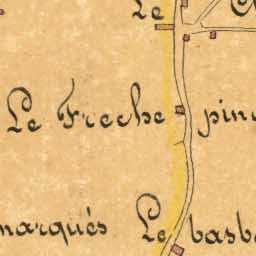 Le
Le Freche
pin
marqués
Le basb